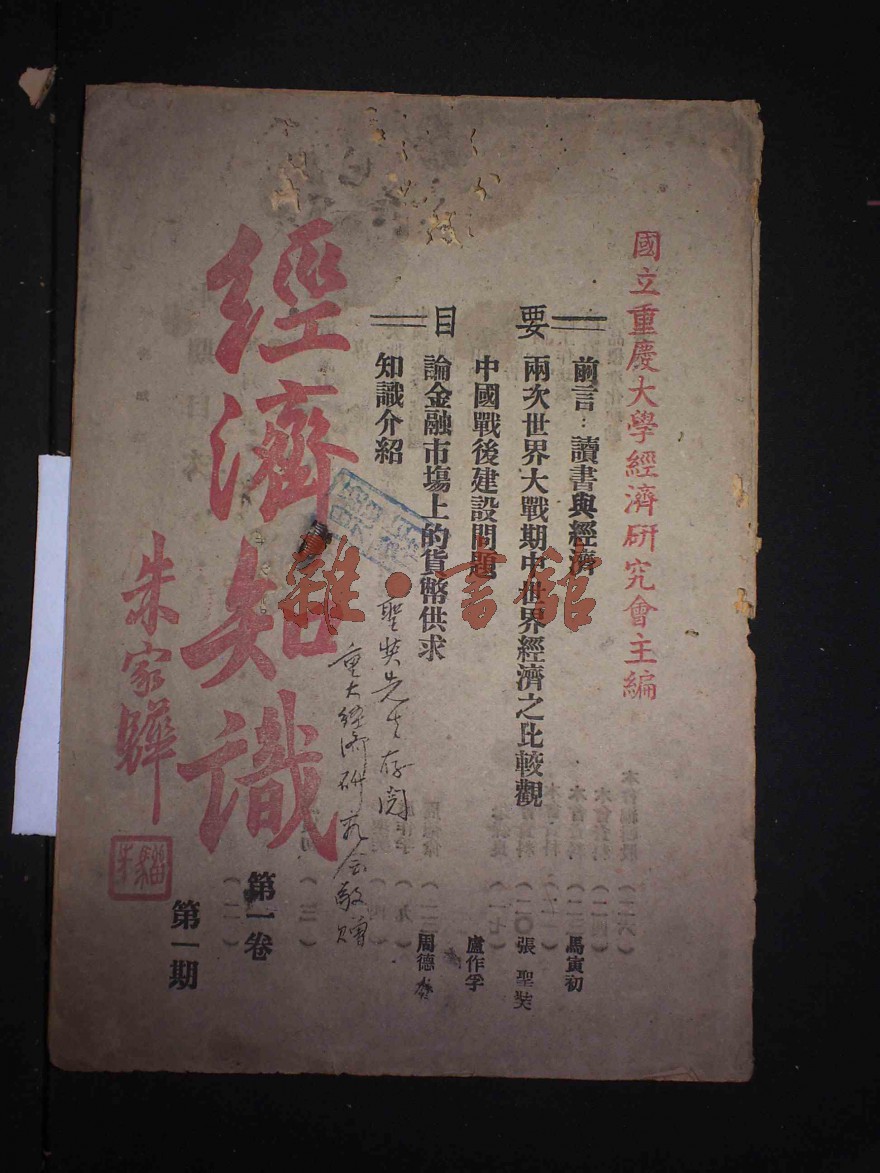 國立重慶大學經濟研究會主編
要目
前言：讀書與經濟 馬寅初
兩次世界大戰期中世界經濟之比較觀 張聖奘
中國戰後建設問題 盧作孚
論金融市場上的貨幣供求 周德
知識介紹
聖奘先生存閱
重大經濟研究會敬贈
經濟知識
朱家驊
第一卷
第一期
雜·書館